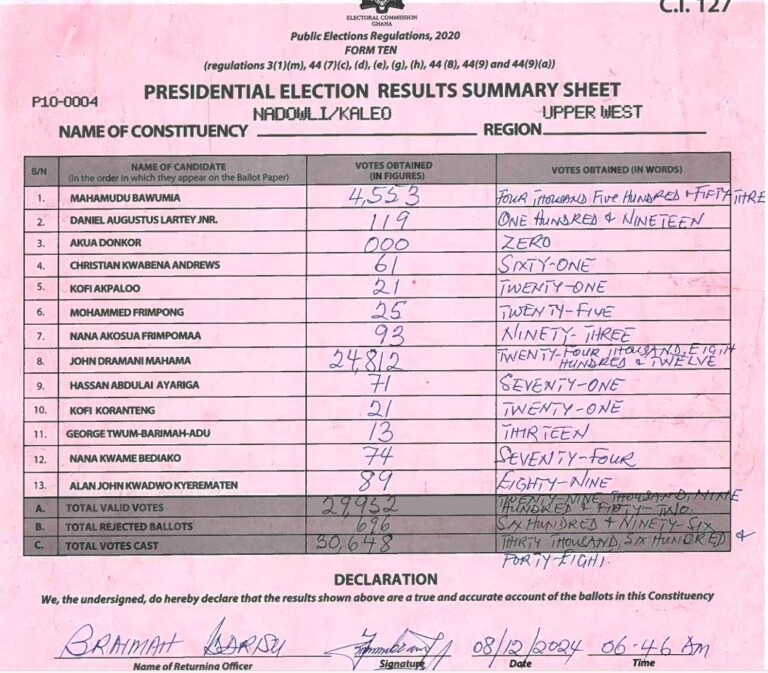 C.I. 127
ELECTORAL COMMISSION
GHANA
Public Elections Regulations, 2020
FORM TEN
(regulations 3(1)(m), 44 (7)(c), (d), (e), (g), (h), 44 (8), 44(9) and 44(9)(a))
PRESIDENTIAL ELECTION RESULTS SUMMARY SHEET
P10-0004
NAME OF CONSTITUENCY NADOWLI/KALEO REGION UPPER WEST
S/N NAME OF CANDIDATE (In the order in which they appear on the Ballot Paper) VOTES OBTAINED (IN FIGURES) VOTES OBTAINED (IN WORDS)
1. MAHAMUDU BAWUMIA 4,553 FOUR THOUSAND FIVE HUNDRED & FIFTY THRE
2. DANIEL AUGUSTUS LARTEY JNR. 119 ONE HUNDRED & NINETEEN
3. AKUA DONKOR 000 ZERO
4. CHRISTIAN KWABENA ANDREWS 61 SIXTY-ONE
5. KOFI AKPALOO 21 TWENTY-ONE
6. MOHAMMED FRIMPONG 25 TWENTY-FIVE
7. NANA AKOSUA FRIMPOMAA 93 NINETY-THREE
8. JOHN DRAMANI MAHAMA 24,812 TWENTY-FOUR THOUSAND, EIGH HUNDRED & TWELVE
9. HASSAN ABDULAI AYARIGA 71 SEVENTY-ONE
10. KOFI KORANTENG 21 TWENTY-ONE
11. GEORGE TWUM-BARIMAH-ADU 13 THIRTEEN
12. NANA KWAME BEDIAKO 74 SEVENTY-FOUR
13. ALAN JOHN KWADWO KYEREMATEN 89 EIGHTY-NINE
A. TOTAL VALID VOTES 29,952 TWENTY-NINE THOUSAND, NINE HUNDRED & FIFTY-TWO
B. TOTAL REJECTED BALLOTS 696 SIX HUNDRED & NINETY-SIX
C. TOTAL VOTES CAST 30,648 THIRTY THOUSAND, SIX HUNDRED & FORTY-EIGHT
DECLARATION
We, the undersigned, do hereby declare that the results shown above are a true and accurate account of the ballots in this Constituency
BRAIMAH IDDRISU 08/12/2024 06-46 AM
Name of Returning Officer Signature Date Time